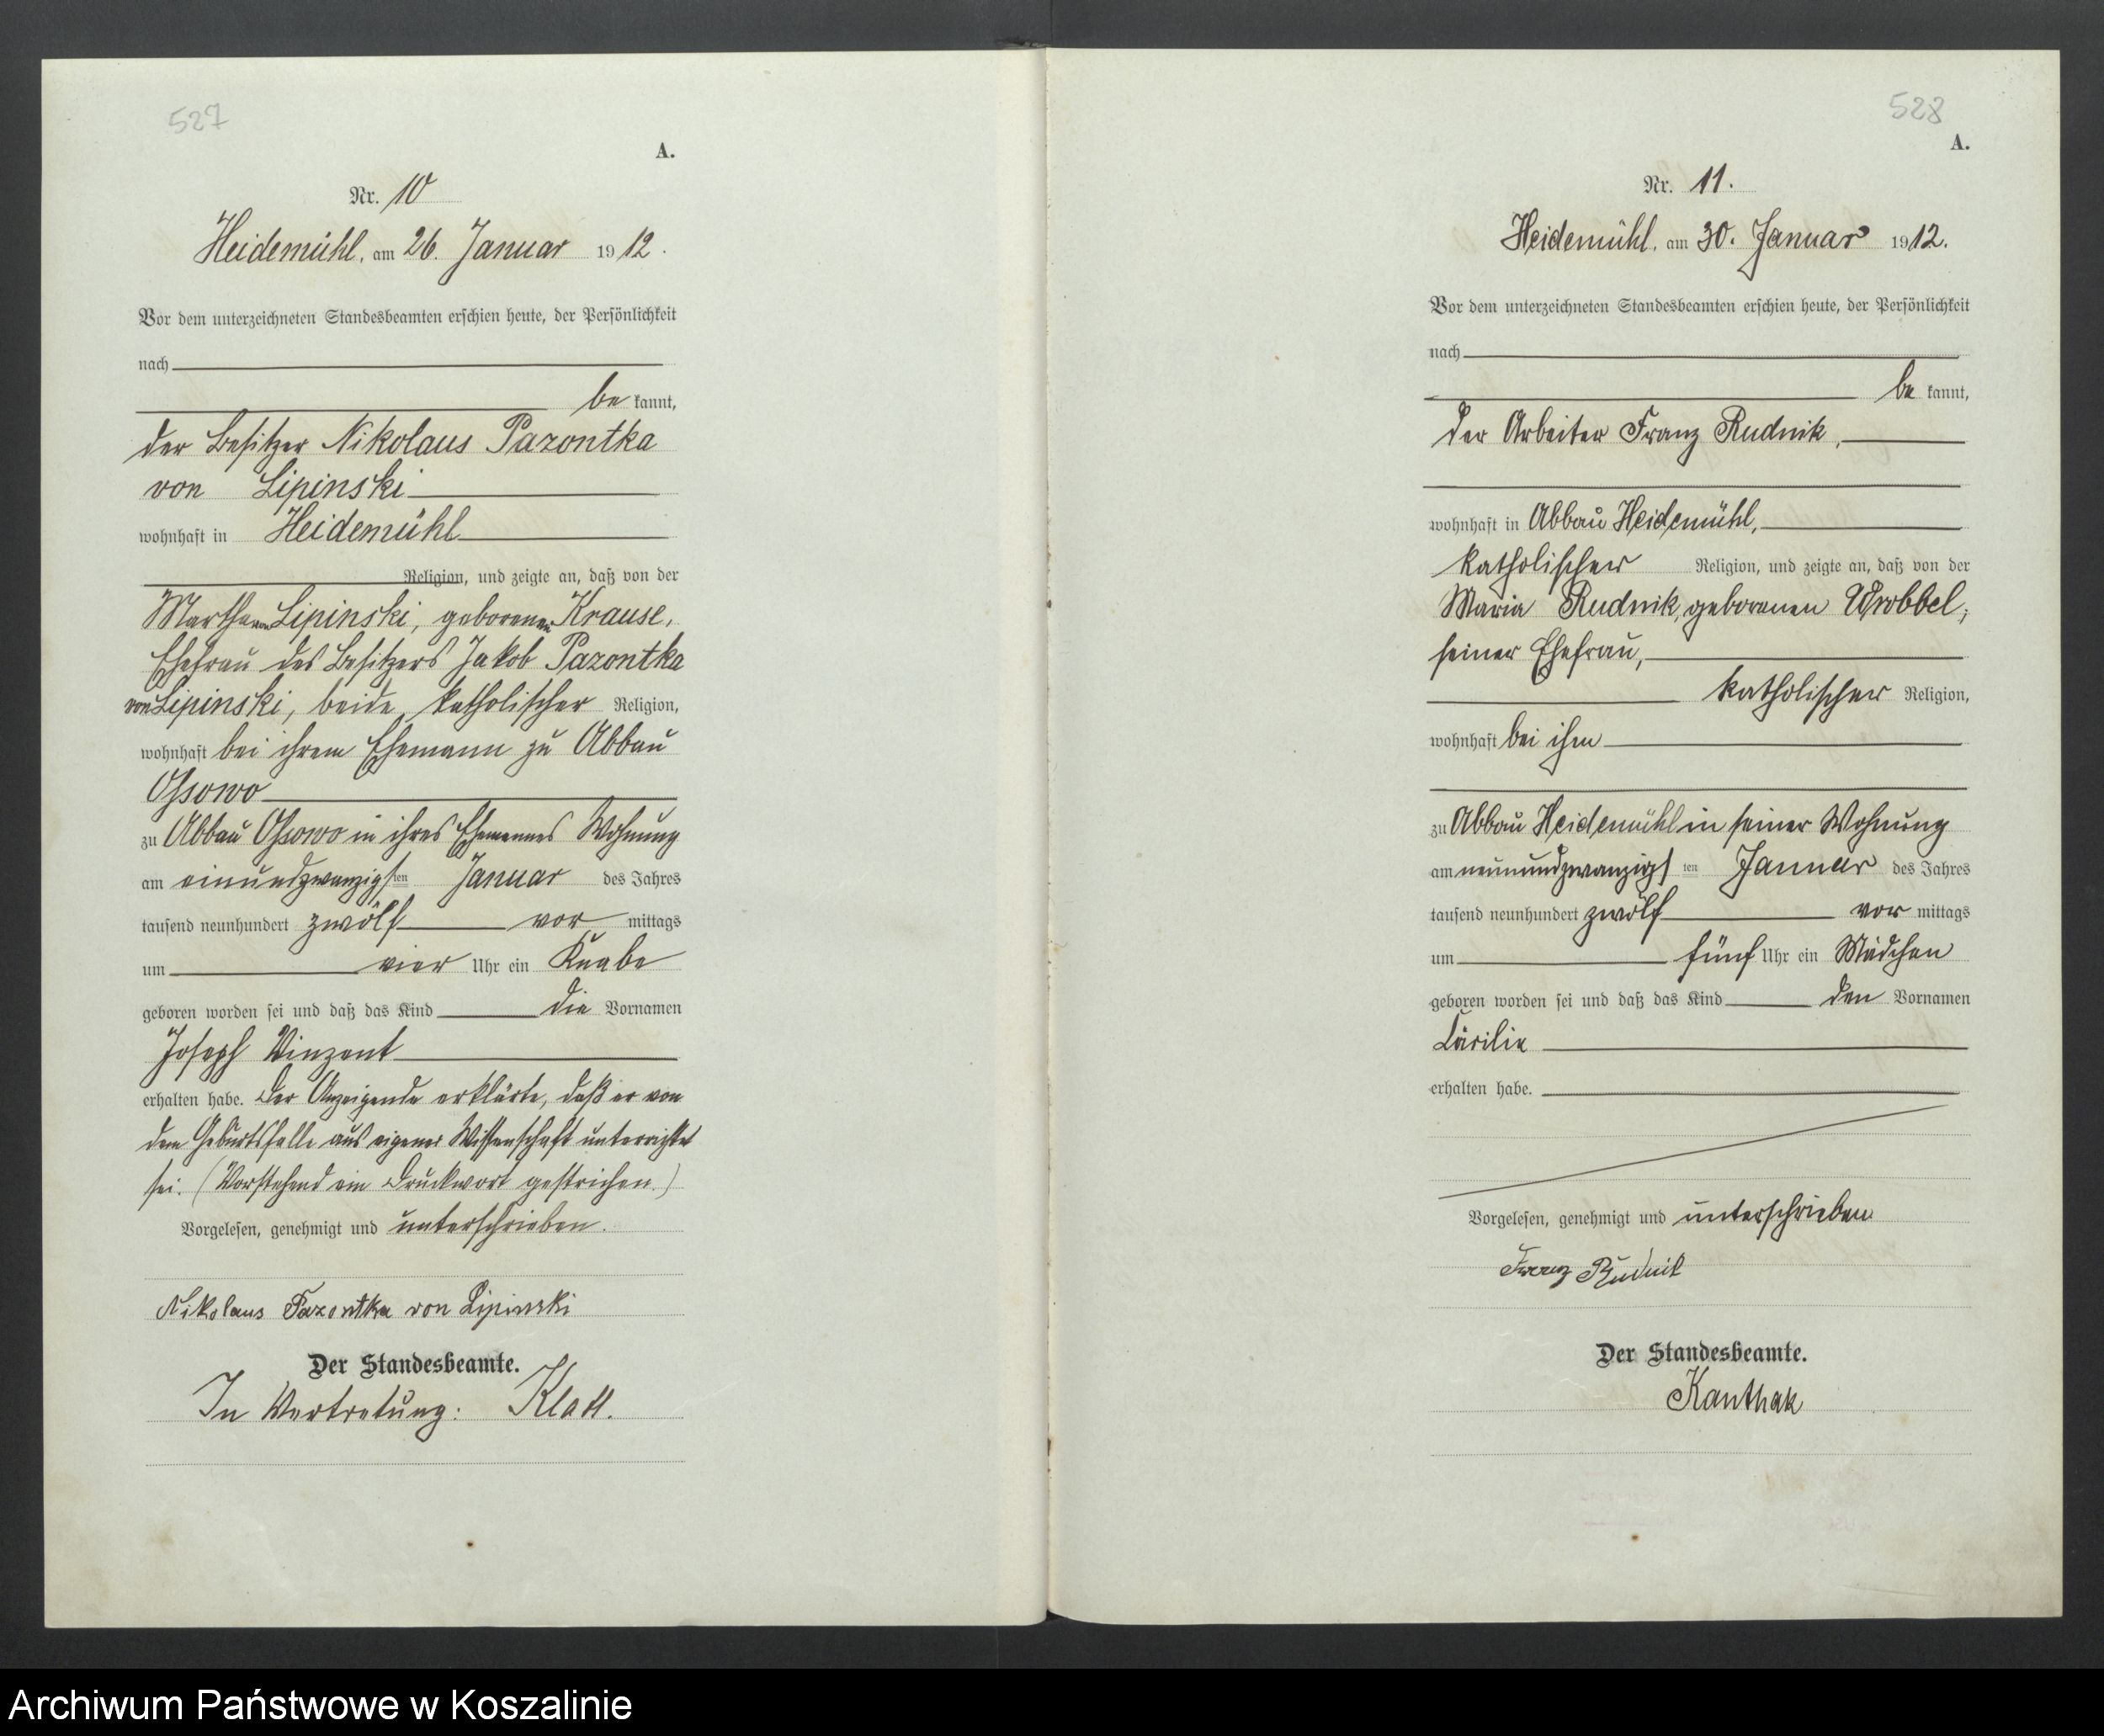 527
A.
Nr. 10
Heidemühl, am 26. Januar 1912.
Vor dem unterzeichneten Standesbeamten erschien heute, der Persönlichkeit
nach
be kannt,
der Besitzer Nikolaus Pazontka
von Lipinski
wohnhaft in Heidemühl
Religion, und zeigte an, daß von der
Martha von Lipinski, geborenen Krause,
Ehefrau des Besitzers Jakob Pazontka
von Lipinski, beide katholischer Religion,
wohnhaft bei ihrem Ehemann zu Abbau
Ossowo
zu Abbau Ossowo in ihres Ehemannes Wohnung
am einundzwanzigsten Januar des Jahres
tausend neunhundert zwölf vor mittags
um vier Uhr ein Knabe
geboren worden sei und daß das Kind die Vornamen
Joseph Vinzent
erhalten habe. Der Anzeigende erklärte, daß er von
dem Geburtsfalle aus eigener Wissenschaft unterrichtet
sei. (Vorstehend ein Druckwort gestrichen.)
Vorgelesen, genehmigt und unterschrieben.
Nikolaus Pazontka von Lipinski
Der Standesbeamte.
In Vertretung: Klatt.
528
A.
Nr. 11.
Heidemühl, am 30. Januar 1912.
Vor dem unterzeichneten Standesbeamten erschien heute, der Persönlichkeit
nach
be kannt,
der Arbeiter Franz Rudnik,
wohnhaft in Abbau Heidemühl,
katholischer Religion, und zeigte an, daß von der
Maria Rudnik, geborenen Wrobbel,
seiner Ehefrau,
katholischer Religion,
wohnhaft bei ihm
zu Abbau Heidemühl in seiner Wohnung
am neunundzwanzigsten Januar des Jahres
tausend neunhundert zwölf vor mittags
um fünf Uhr ein Mädchen
geboren worden sei und daß das Kind den Vornamen
Cäcilie
erhalten habe.
Vorgelesen, genehmigt und unterschrieben
Franz Rudnik
Der Standesbeamte.
Kanthak
Archiwum Państwowe w Koszalinie